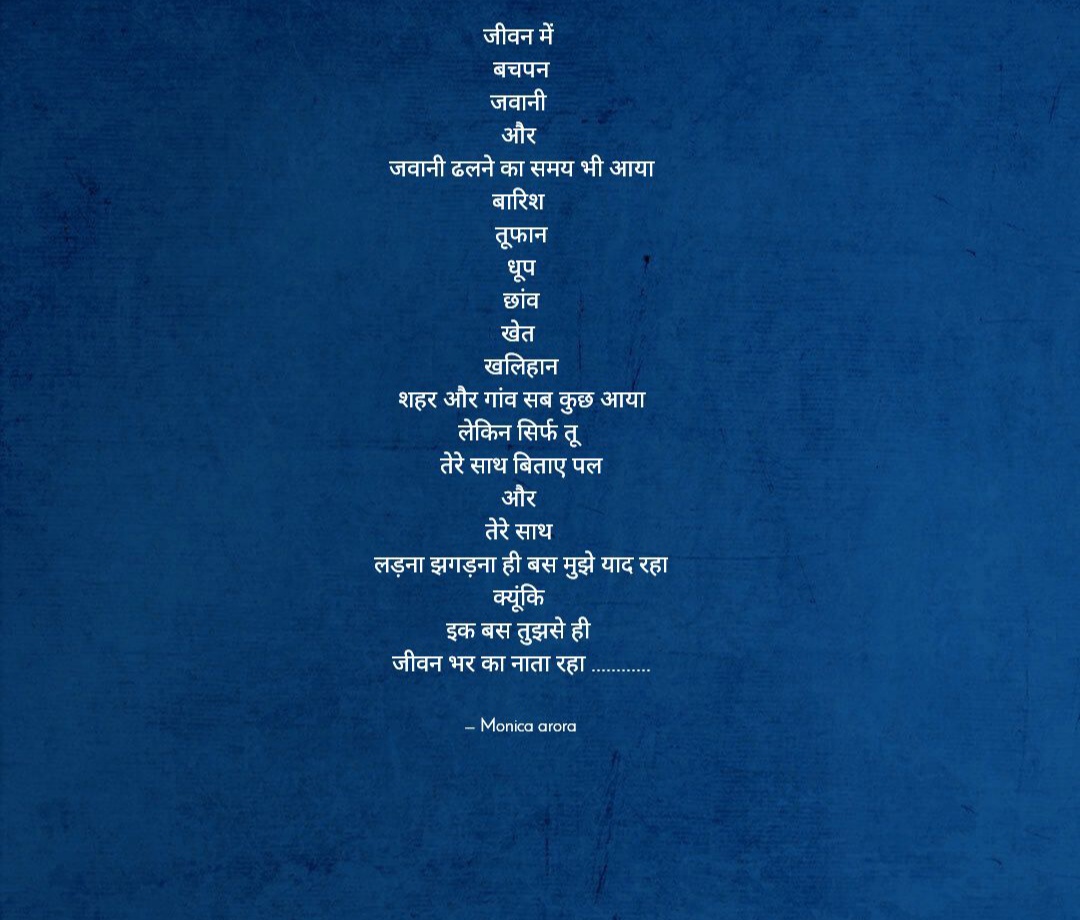 जीवन में
बचपन
जवानी
और
जवानी ढलने का समय भी आया
बारिश
तूफान
धूप
छांव
खेत
खलिहान
शहर और गांव सब कुछ आया
लेकिन सिर्फ तू
तेरे साथ बिताए पल
और
तेरे साथ
लड़ना झगड़ना ही बस मुझे याद रहा
क्यूंकि
इक बस तुझसे ही
जीवन भर का नाता रहा ............
– Monica arora